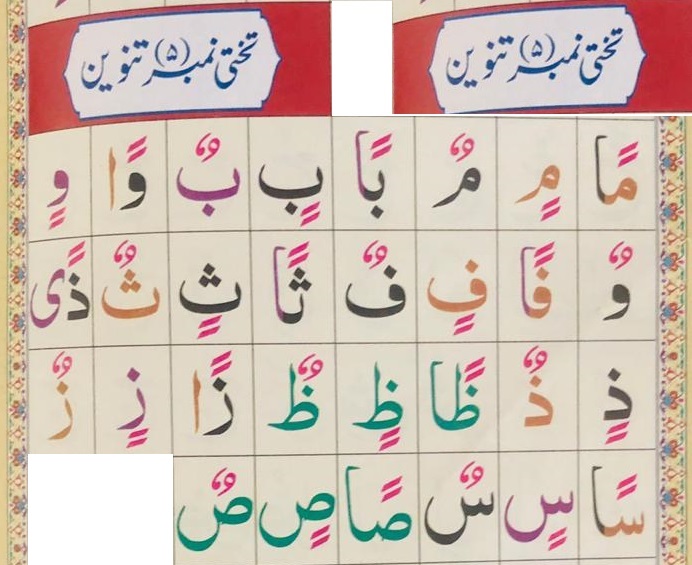 تختی نمبر (۵) تنوین تختی نمبر (۵) تنوین
مًا مٍ مٌ بًا بٍ بٌ وًا وٍ
وٌ فًا فٍ فٌ ثًا ثٍ ثٌ ذًی
ذٍ ذٌ ظًا ظٍ ظٌ زًا زٍ زٌ
سًا سٍ سٌ صًا صٍ صٌ